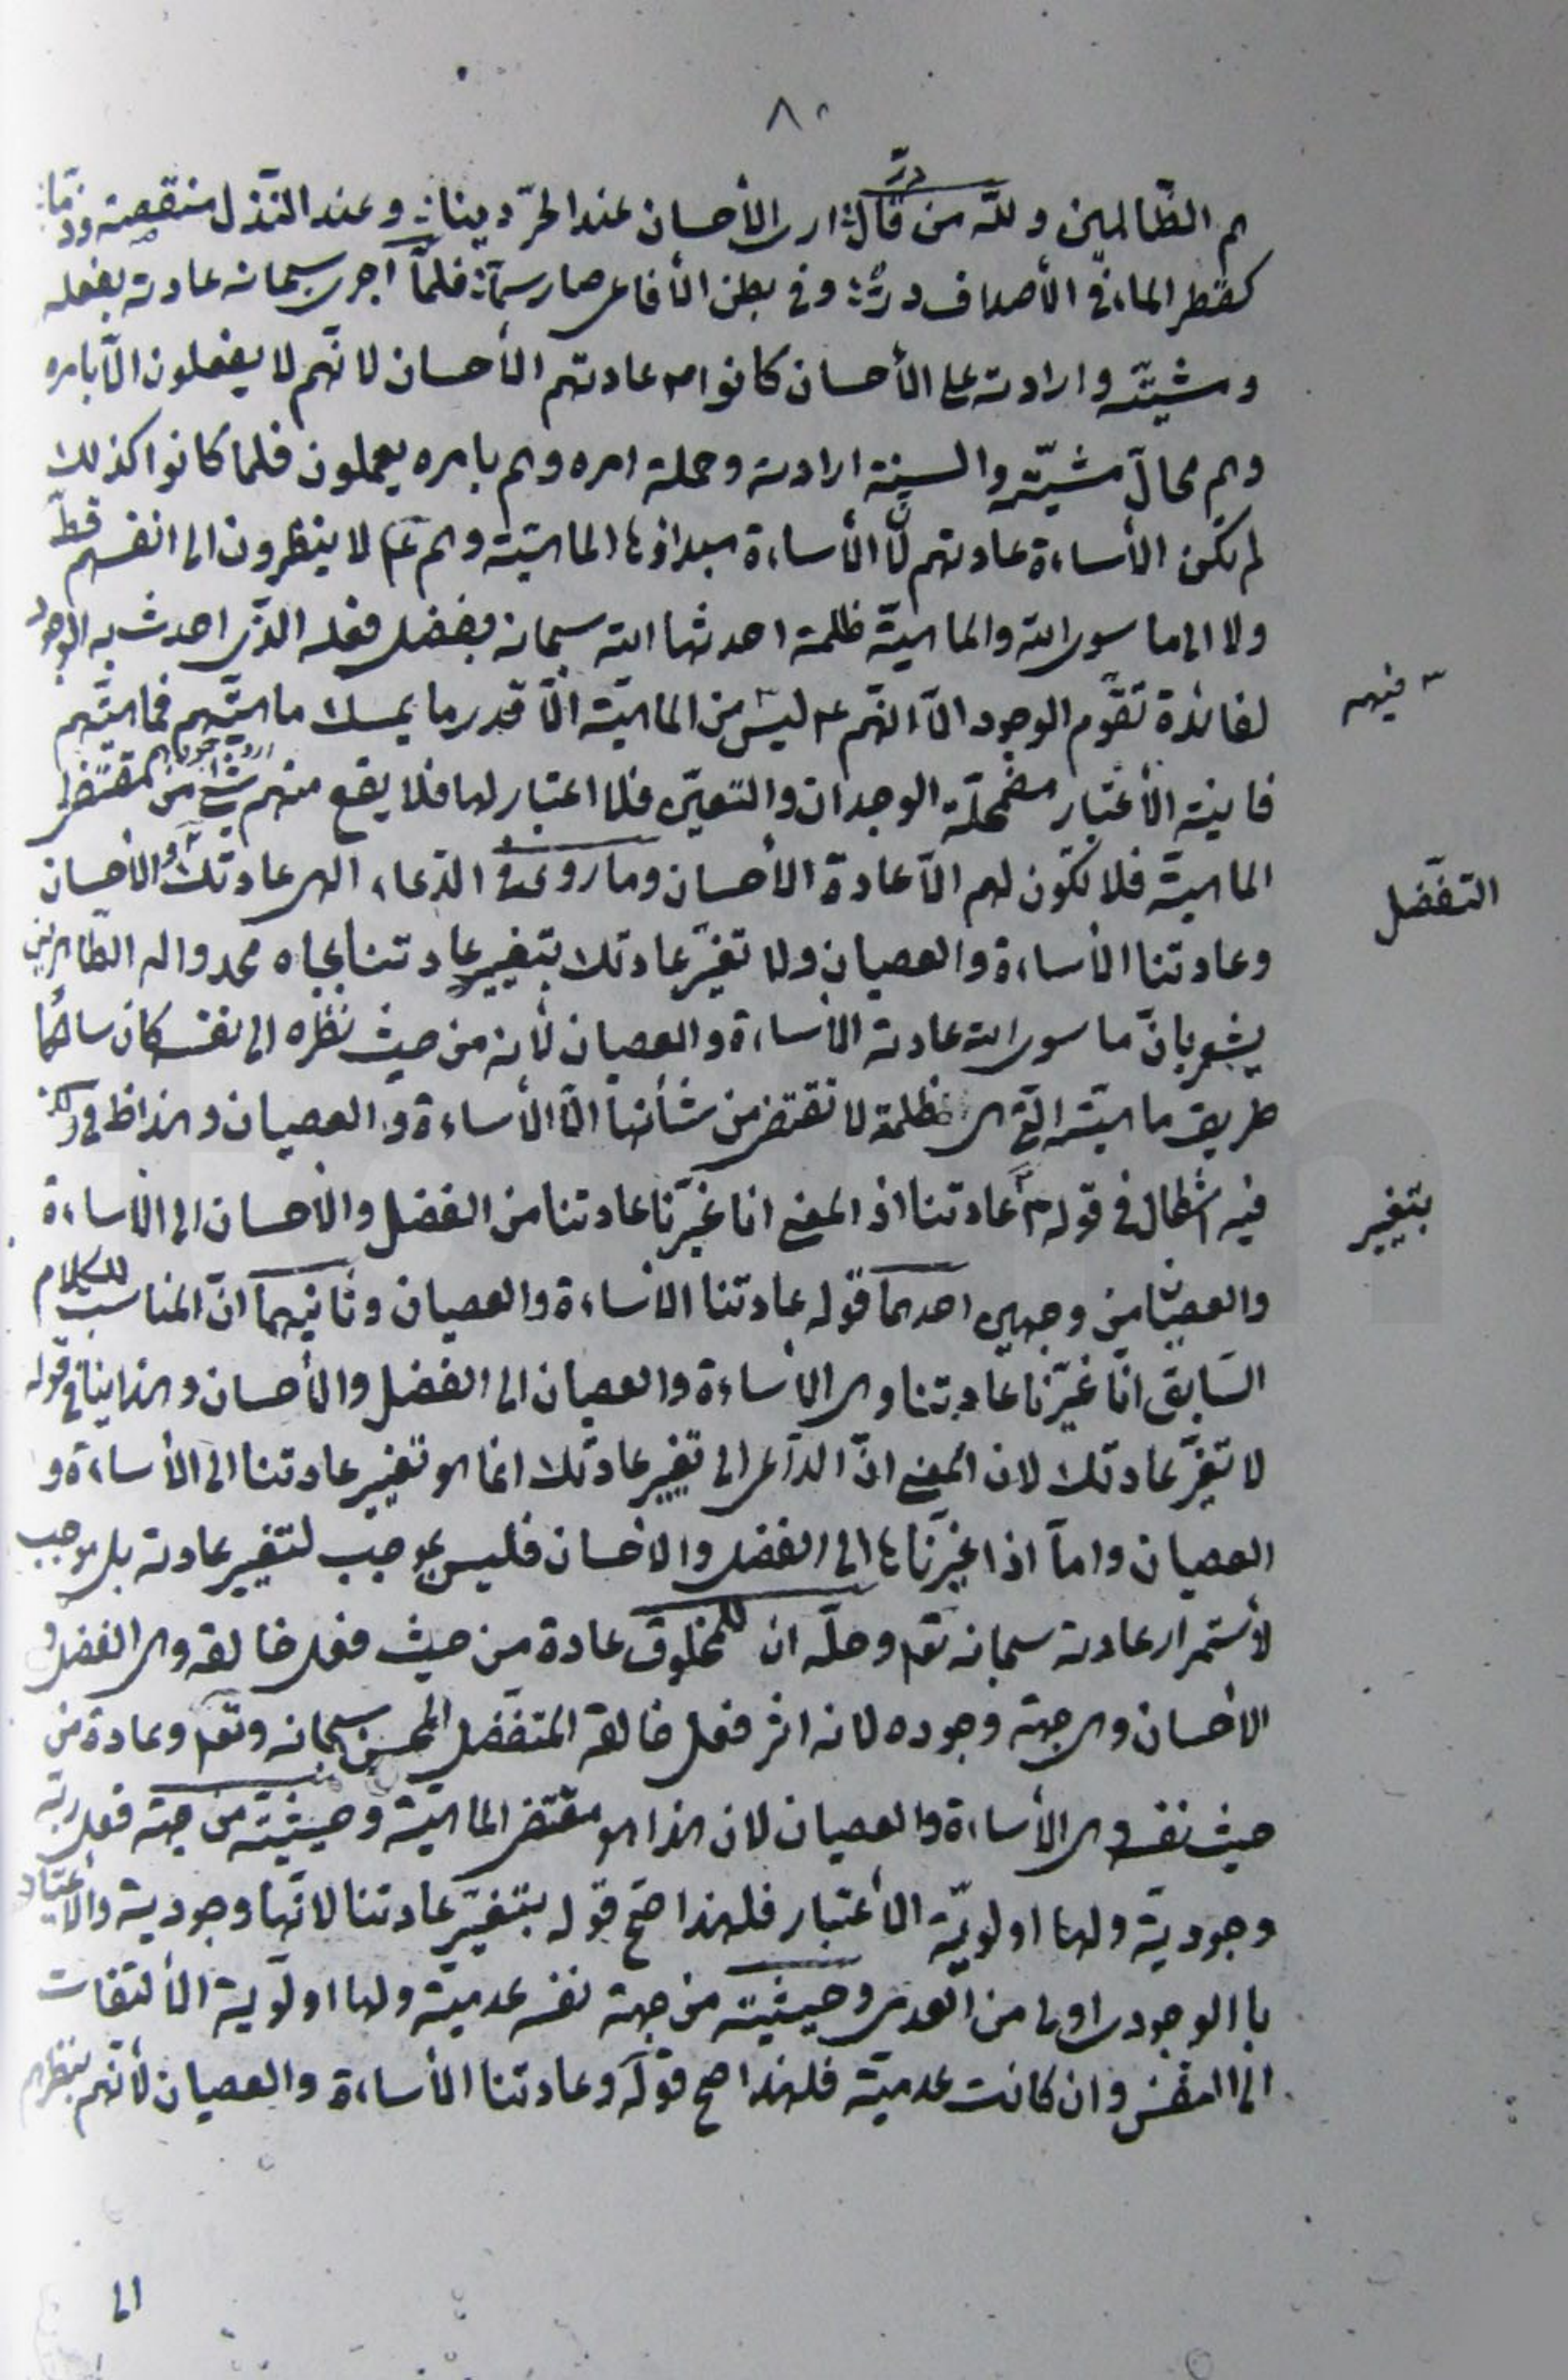 ٨٠
هم الظّالمين ولله درّ من قال: ارى الأحسان عند الحرّ دينا: وعند النّذل منقصة وذمّا:
كقطر الماء في الأصداف درّ: وفي بطن الأفاعى صار سمّا: فلمّا اجرى سبحانه عادته بفعله
ومشيّته وارادته على الأحسان كانوا م عادتهم الأحسان لانّهم لا يفعلون الّا بامره
وهم محالّ مشيّته والسنة ارادته وحملة امره وهم بامره يعملون فلما كانوا كذلك
لم تكن الأساءة عادتهم لأنّ الأساءة مبداؤها الماهيّة وهم ع لا ينظرون الى انفسهم قطّ
ولا الى ما سوى الله والماهيّة ظلمة احدثها الله سبحانه بفضل فعله الّذى احدث به الوجود
لفائدة تقوّم الوجود الّا انّهم ع ليس فيهم من الماهيّة الّا قدر ما يمسك ماهيّتهم فماهيّتهم
فانية الأعتبار مضمحلّة الوجدان والتعيّن فلا اعتبار لها فلا يقع منهم شئ من مقتضى
الماهيّة فلا تكون لهم الّا عادة الأحسان وما روى في الدّعاء الهى عادتك التفضّل والأحسان
وعادتنا الأساءة والعصيان ولا تغيّر عادتك بتغيير عادتنا بجاه محمد واله الطّاهرين
يشعر بانّ ما سوى الله عادته الأساءة والعصيان لأنه من حيث نظره الى نفسه كان سالكًا
طريق ماهيّته الّتى هى ظلمة لا تقتضى من شأنها الّا الأساءة والعصيان وهذا ظ
فيه اشكال في قوله بتغيير عادتنا اذ المعنى انا غيّرنا عادتنا من الفضل والأحسان الى الأساءة
والعصيان من وجهين احدهما قوله عادتنا الأساءة والعصيان وثانيهما انّ المناسب للكلام
السّابق انّا غيّرنا عادتنا وهى الأساءة والعصيان الى الفضل والأحسان وهذا ينافي قوله
لا تغيّر عادتك لان المعنى انّ الدّاعى الى تغيير عادتك انما هو تغيير عادتنا الى الأساءة و
العصيان وامّا اذا غيّرناها الى الفضل والاحسان فليس بموجب لتغيير عادته بل موجب
لأستمرار عادته سبحانه تع وحلّه ان للمخلوق عادة من حيث فعل خالقه وهى الفضل و
الاحسان وهى جهة وجوده لانه اثر فعل خالقه المتفضّل المحسن سبحانه وتع وعادة من
حيث نفسه وهى الأساءة والعصيان لان هذا هو مقتضى الماهيّة وحيثيّته من جهة فعل ربّه
وجوديّة ولها اولويّة الأعتبار فلهذا صحّ قوله بتغيير عادتنا لانّها وجودية والأعتبار
با الوجودى اولى من العدمى وحيثيّته من جهة نفسه عدميّة ولها اولّوية الألتفات
الى النفس وان كانت عدميّة فلهذا صح قوله وعادتنا الأساءة والعصيان لأنّهم بنظرهم
الى